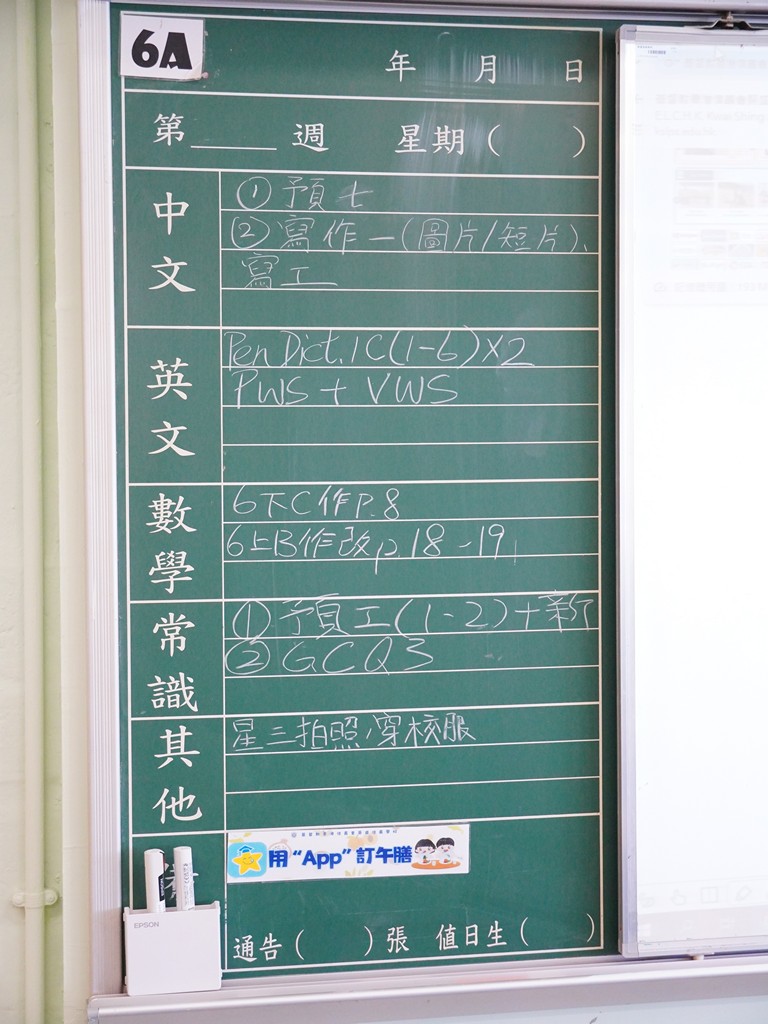 6A
年 月 日
第____週 星期( )
中文
①預七
②寫作一(圖片/短片)、
寫工
英文
Pen Dict. 1C(1-6)×2
PWS + VWS
數學
6下C作P.8
6上B作改p.18-19
常識
①預工(1-2)+新
②GCQ3
其他
星三拍照,穿校服
用“App”訂午膳
EPSON
通告( )張 值日生( )